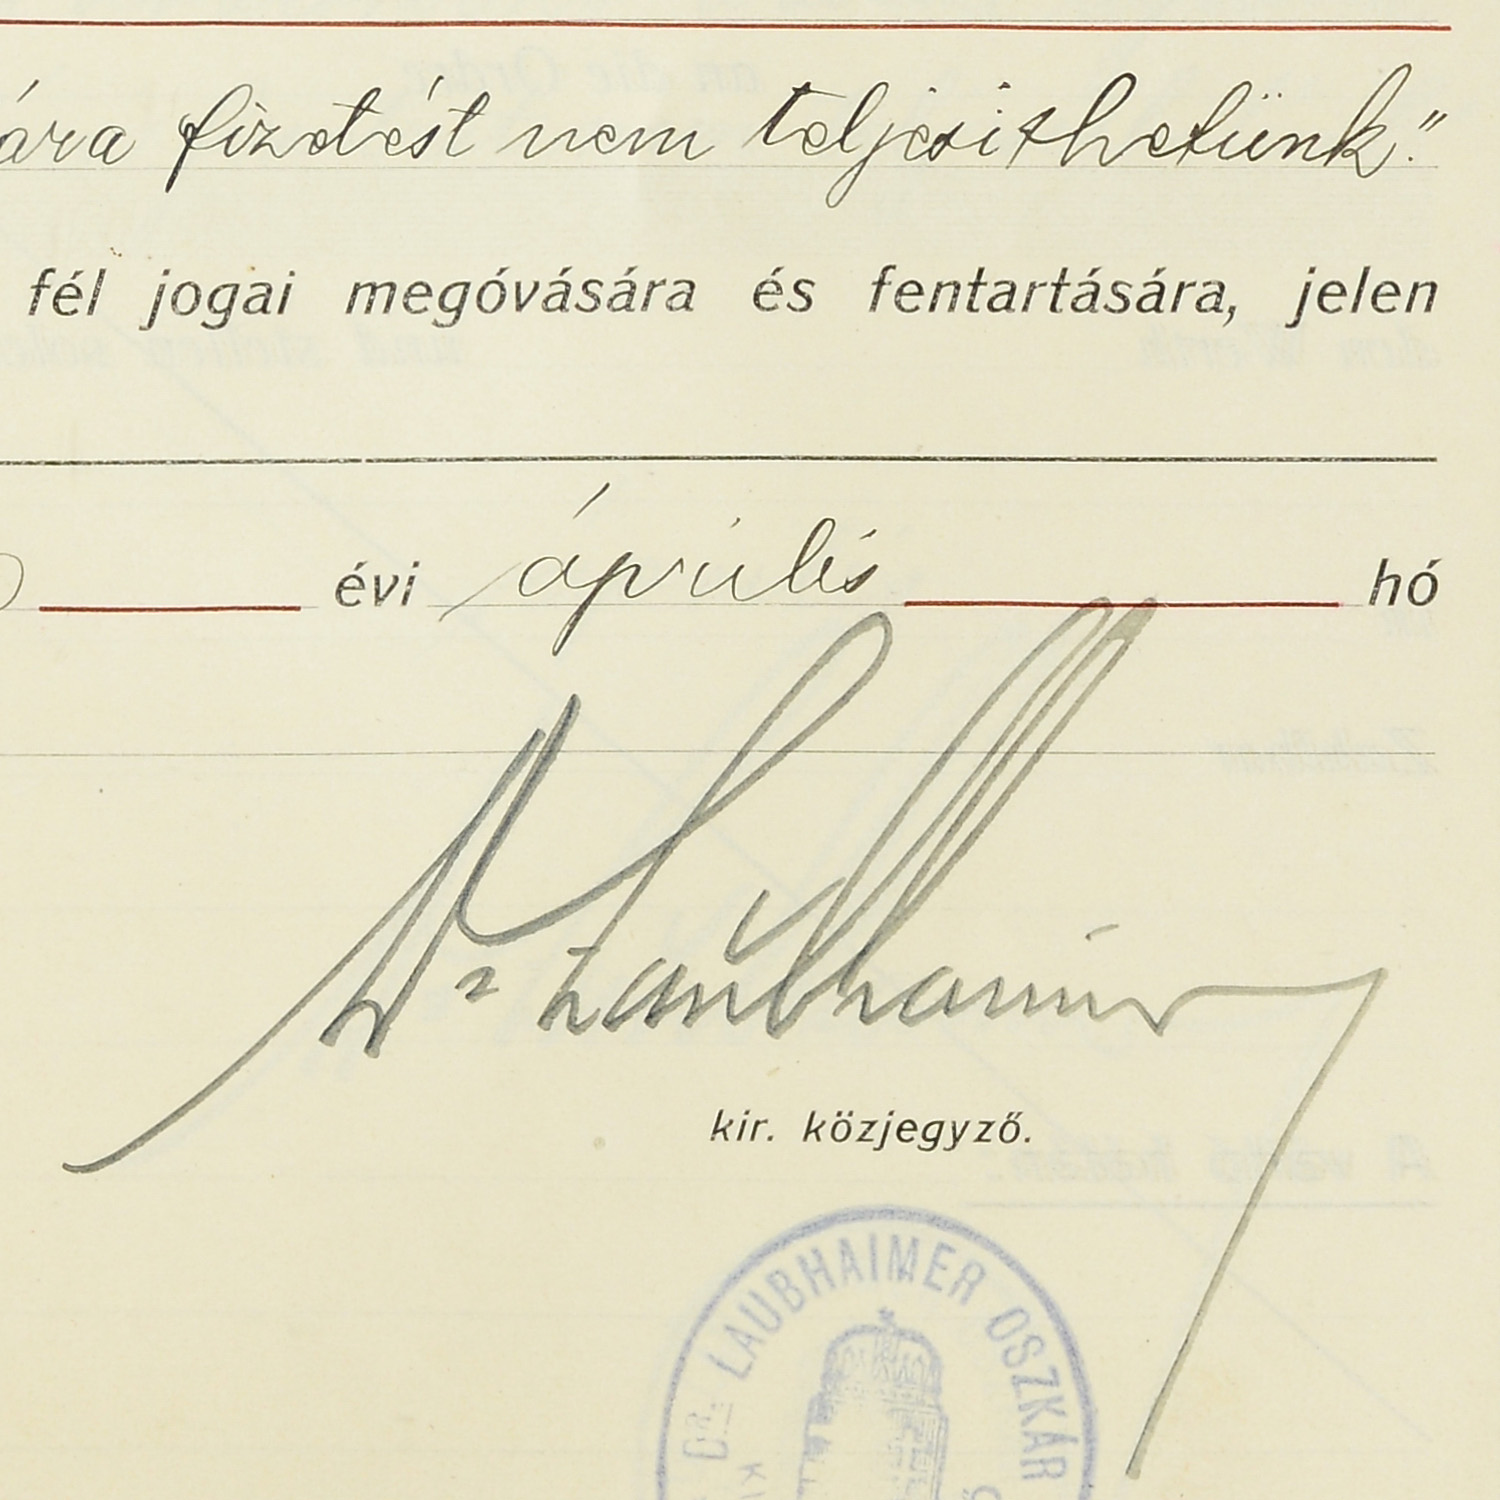 ára fizetést nem teljesithetünk."
fél jogai megóvására és fentartására, jelen
évi április hó
Dr Laubhaimer
kir. közjegyző.
DR. LAUBHAIMER OSZKÁR